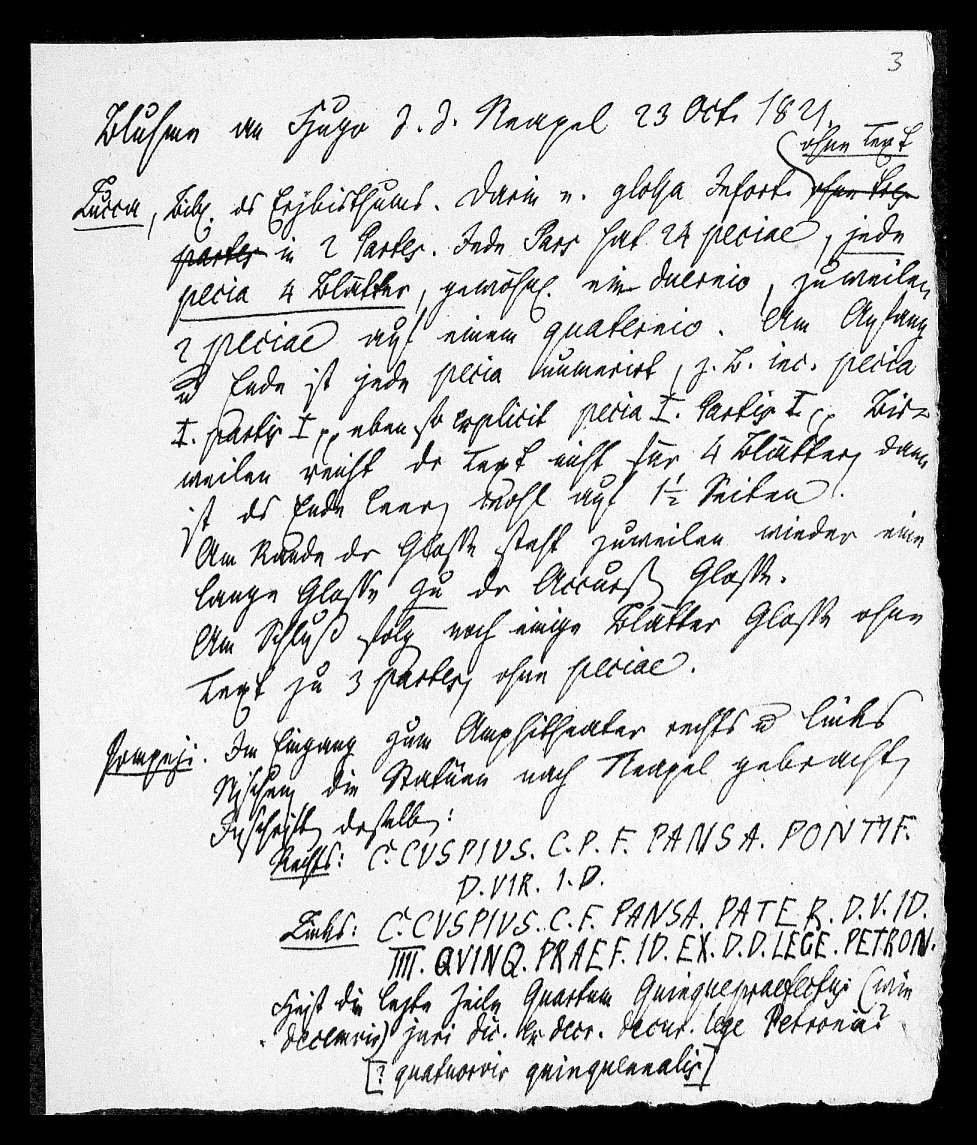 3
Bluhme an Hugo d. d. Neapel 23 Oct. 1821.
ohne Text
Lucca, Bibl. des Erzbisthums. Darin e. glossa Infort. ohne
partes in 2 Partes. Jede Pars hat 24 peciae, jede
pecia 4 Blätter, gewöhnl. ein duernio, zuweilen
2 peciae auf einem quaternio. Am Anfang
u Ende ist jede pecia numerirt, z. B. inc. pecia
I. partis I, ebenso explicit pecia I. Partis I. Bis-
weilen reicht der Text nicht für 4 Blätter, dann
ist das Ende leer, wohl auf 1½ Seiten.
Am Rande der Glosse steht zuweilen wieder eine
lange Glosse zu der Accurs. Glosse.
Am Schluß folg. noch einige Blätter Glosse ohne
Text zu 3 Partes, ohne peciae.
Pompeji. Im Eingang zum Amphitheater rechts u links
Nischen, die Statuen nach Neapel gebracht,
Inschriften derselben:
Rechts: C. CVSPIVS. C. P. F. PANSA. PONTIF.
D. VIR. I. D.
Links: C. CVSPIVS. C. F. PANSA. PATER. D. V. ID.
IIII. QVINQ. PRAEF. ID. EX. D. D. LEGE. PETRON.
Heißt die letzte Zeile Quartum Quinquepraefectus (wie
decemvir) juri dic. ex decr. decur. lege Petronia?
[? quatuorvir quinquennalis]